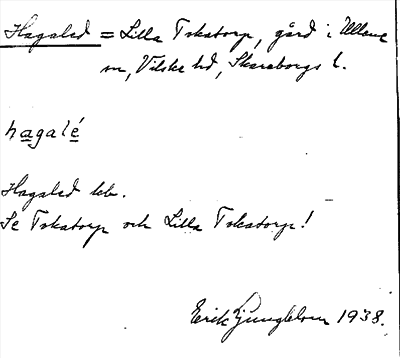 Hagaled = Lilla Tokatorp, gård i Ullene
sn, Vilske hd, Skaraborgs l.
hagalé
Hagaled beb.
Se Tokatorp och Lilla Tokatorp!
Erik Ljungblom 1938.